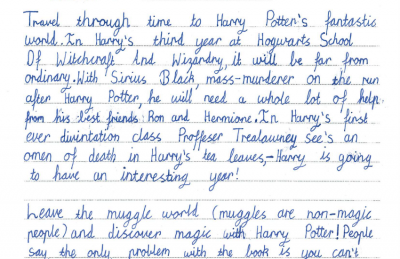 Travel through time to Harry Potter's fantastic
world. In Harry's third year at Hogwarts School
Of Witchcraft And Wizardry, it will be far from
ordinary. With Sirius Black, mass-murderer on the run
after Harry Potter, he will need a whole lot of help
from his best friends: Ron and Hermione. In Harry's first
ever divintation class Proffeser Trealawney see's an
omen of death in Harry's tea leaves,-Harry is going
to have an interesting year!
Leave the muggle world (muggles are non-magic
people) and discover magic with Harry Potter! People
say the only problem with the book is you can't